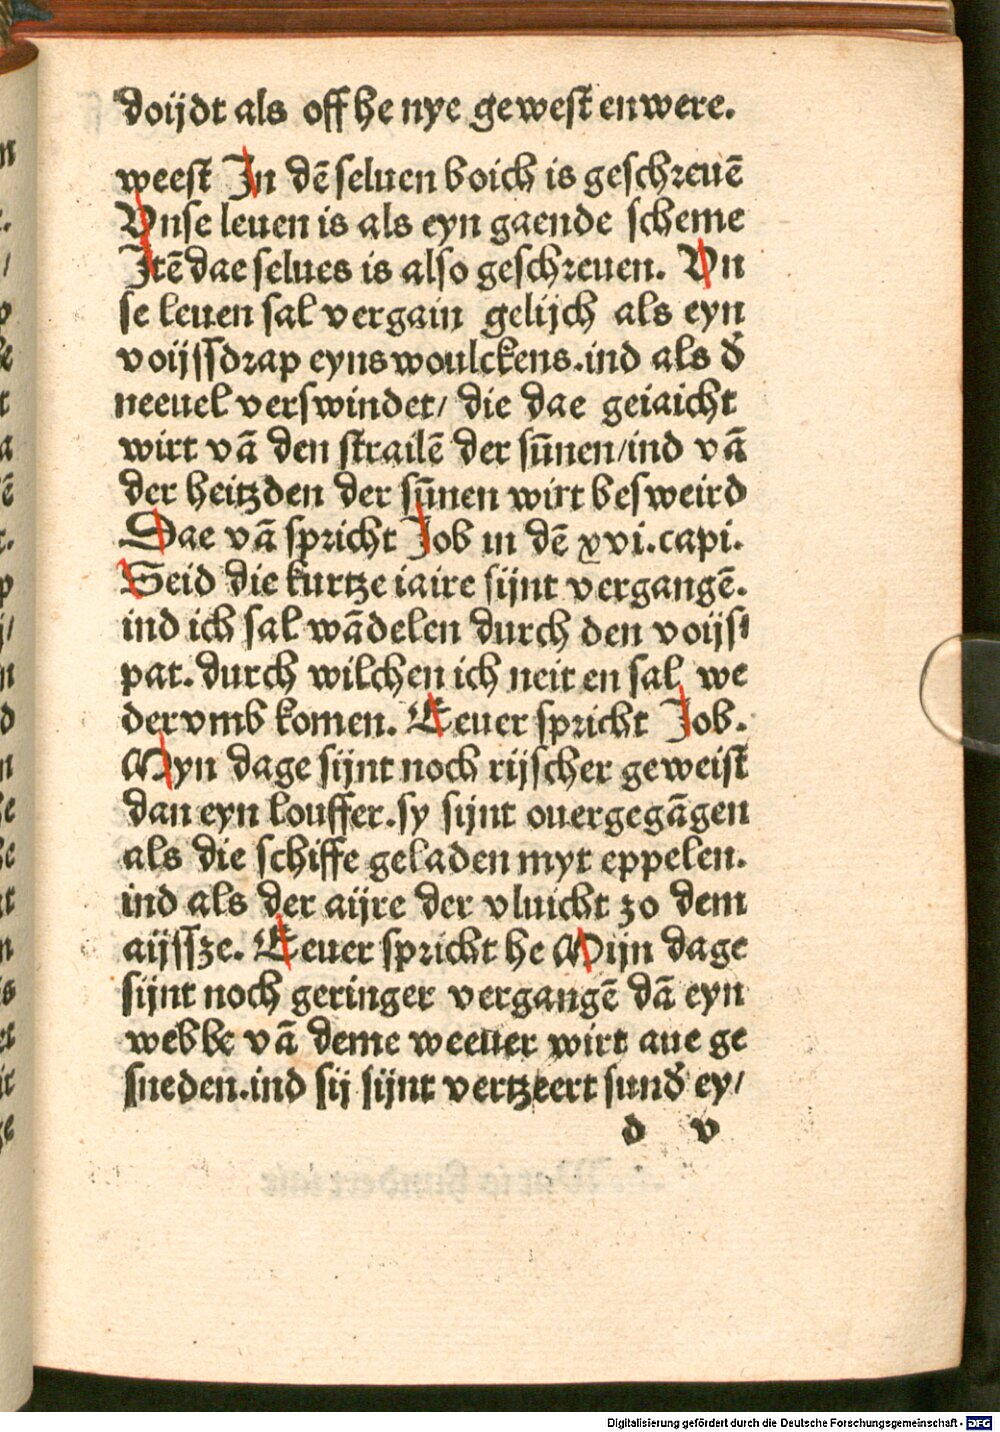 doijdt als off he nye gewest en were.
weest In dē seluen boich is geschreuē
Vnse leuen is als eyn gaende scheme
Itē dae selues is also geschreuen. Vn
se leuen sal vergain gelijch als eyn
voijssdrap eyns woulckens. ind als d̄
neeuel verswindet/ die dae geiaicht
wirt vā den strailē der sūnen/ind vā
der heitzden der sūnen wirt besweird
Dae vā spricht Job in dē xvi. capi.
Seid die kurtze iaire sijnt vergangē.
ind ich sal wādelen durch den voijs⸗
pat. durch wilchen ich neit en sal we
der vmb komen. Leuer spricht Job.
Myn dage sijnt noch rijscher geweist
dan eyn louffer. sy sijnt ouergegāgen
als die schiffe geladen myt eppelen.
ind als der aijre der vluicht zo dem
aijssze. Leuer spricht he Mijn dage
sijnt noch geringer vergangē dā eyn
webbe vā deme weeuer wirt aue ge
sneden. ind sij sijnt vertzeert sund̄ ey/
d v
Digitalisierung gefördert durch die Deutsche Forschungsgemeinschaft - DFG